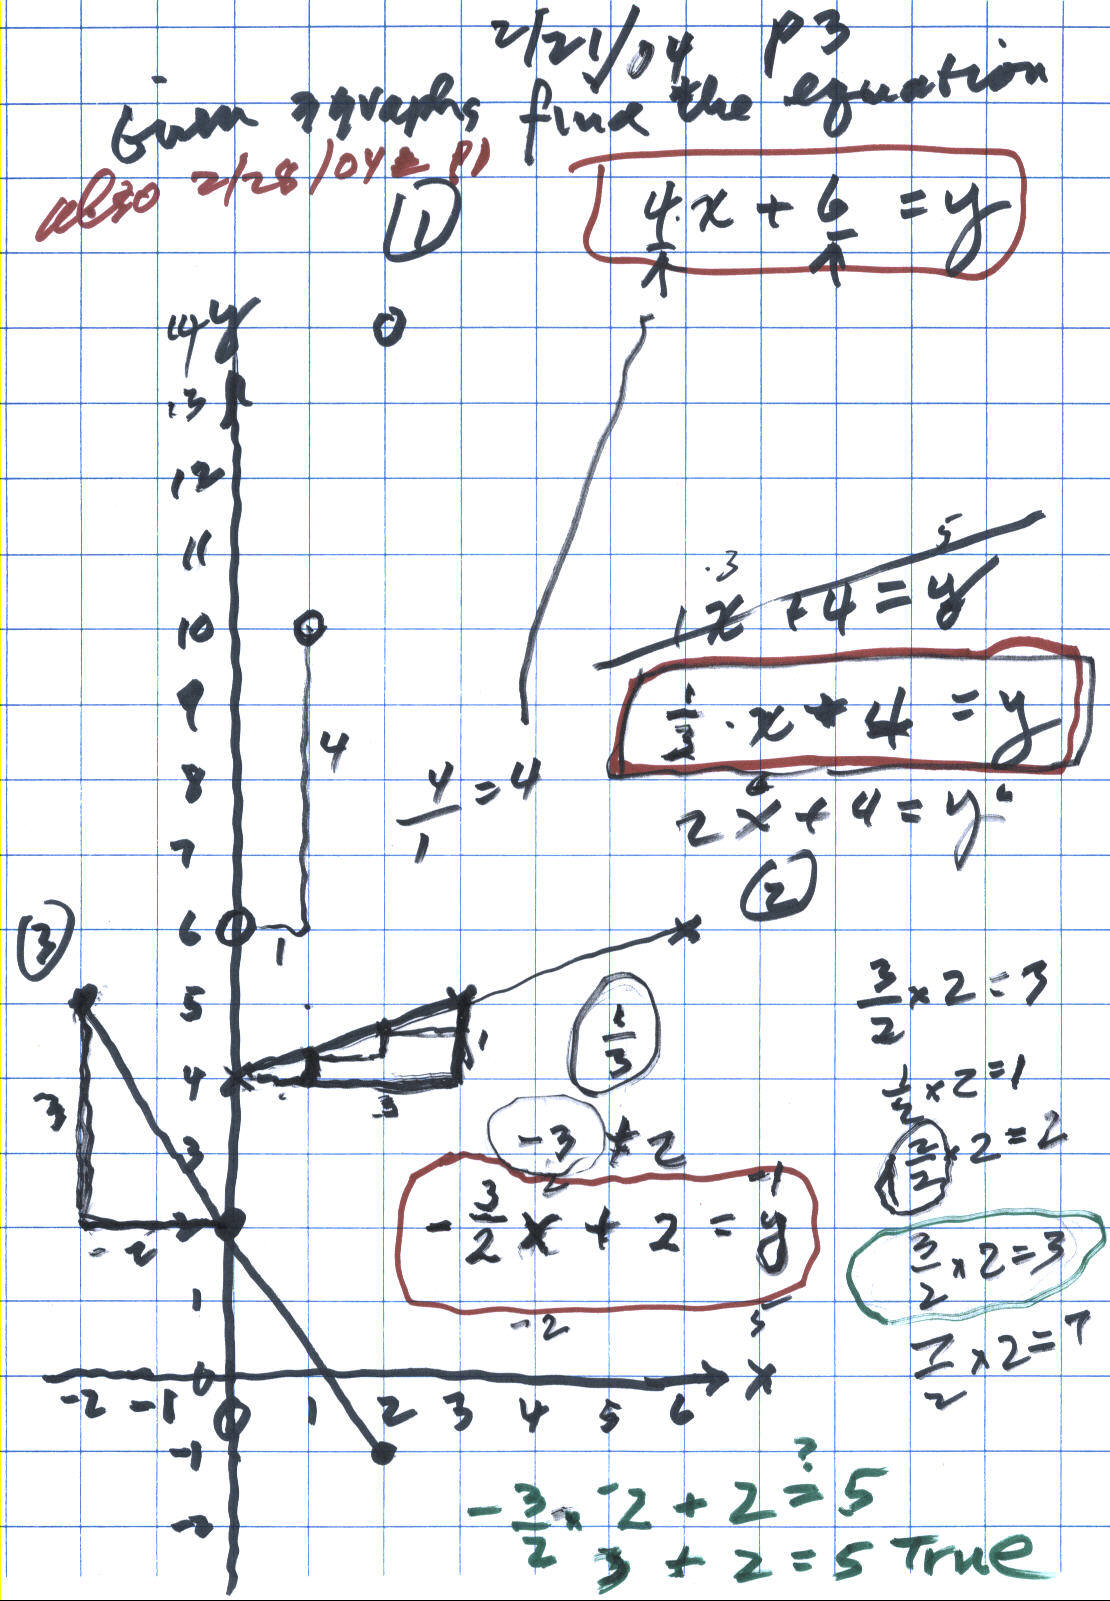 2/21/04 p3
Given graphs, find the equation
also 2/28/04 p1
①
4·x + 6 = y
y
14
13
12
11
10
9
8
7
6
5
4
3
2
1
0
-1
-2
4
1
4/1 = 4
3 5
1x + 4 = y
1/3 · x + 4 = y
2x + 4 = y
②
③
3
-2
1
3
1/3
3/2 × 2 = 3
1/2 × 2 = 1
2/2 × 2 = 2
3/2 × 2 = 3
7/2 × 2 = 7
-3 + 2
2 -1
-3/2 x + 2 = y
-2 5
-2 -1 0 1 2 3 4 5 6 x
-3/2 × -2 + 2 ?= 5
3 + 2 = 5 True